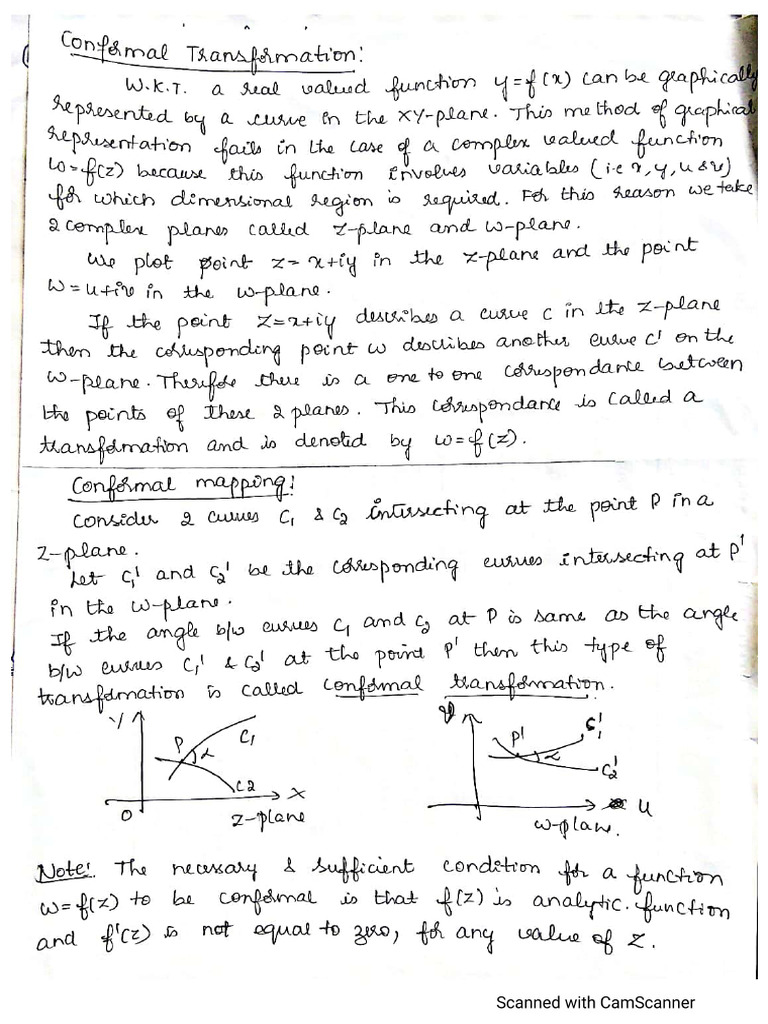 Conformal Transformation:
W.K.T. a real valued function y=f(x) can be graphically
represented by a curve in the XY-plane. This method of graphical
representation fails in the case of a complex valued function
w=f(z) because this function involves variables (i.e x, y, u & v)
for which dimensional region is required. For this reason we take
2 complex planes called z-plane and w-plane.
We plot point z=x+iy in the z-plane and the point
w=u+iv in the w-plane.
If the point z=x+iy describes a curve c in the z-plane
then the corresponding point w describes another curve c' on the
w-plane. Therefore there is a one to one correspondance between
the points of these 2 planes. This correspondance is called a
transformation and is denoted by w=f(z).
Conformal mapping:
Consider 2 curves C1 & C2 intersecting at the point P in a
z-plane.
Let C1' and C2' be the corresponding curves intersecting at P'
in the w-plane.
If the angle b/w curves C1 and C2 at P is same as the angle
b/w curves C1' & C2' at the point P' then this type of
transformation is called conformal transformation.
Y P C1 α C2 O X z-plane
v P' C1' α C2' u w-plane.
Note: The necessary & sufficient condition for a function
w=f(z) to be conformal is that f(z) is analytic function
and f'(z) is not equal to zero, for any value of z.
Scanned with CamScanner